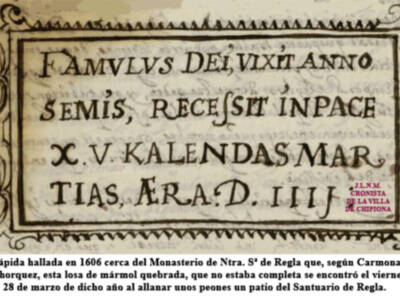 FAMVLVS DEI, VIXIT ANNO
SEMIS, RECESSIT INPACE
X.V. KALENDAS MAR
TIAS, ÆRA.D. IIIJ.
J.L.N.M.
CRONISTA
DE LA VILLA
DE CHIPIONA
ápida hallada en 1606 cerca del Monasterio de Ntra. Sª de Regla que, según Carmona
horquez, esta losa de mármol quebrada, que no estaba completa se encontró el vierne
28 de marzo de dicho año al allanar unos peones un patio del Santuario de Regla.